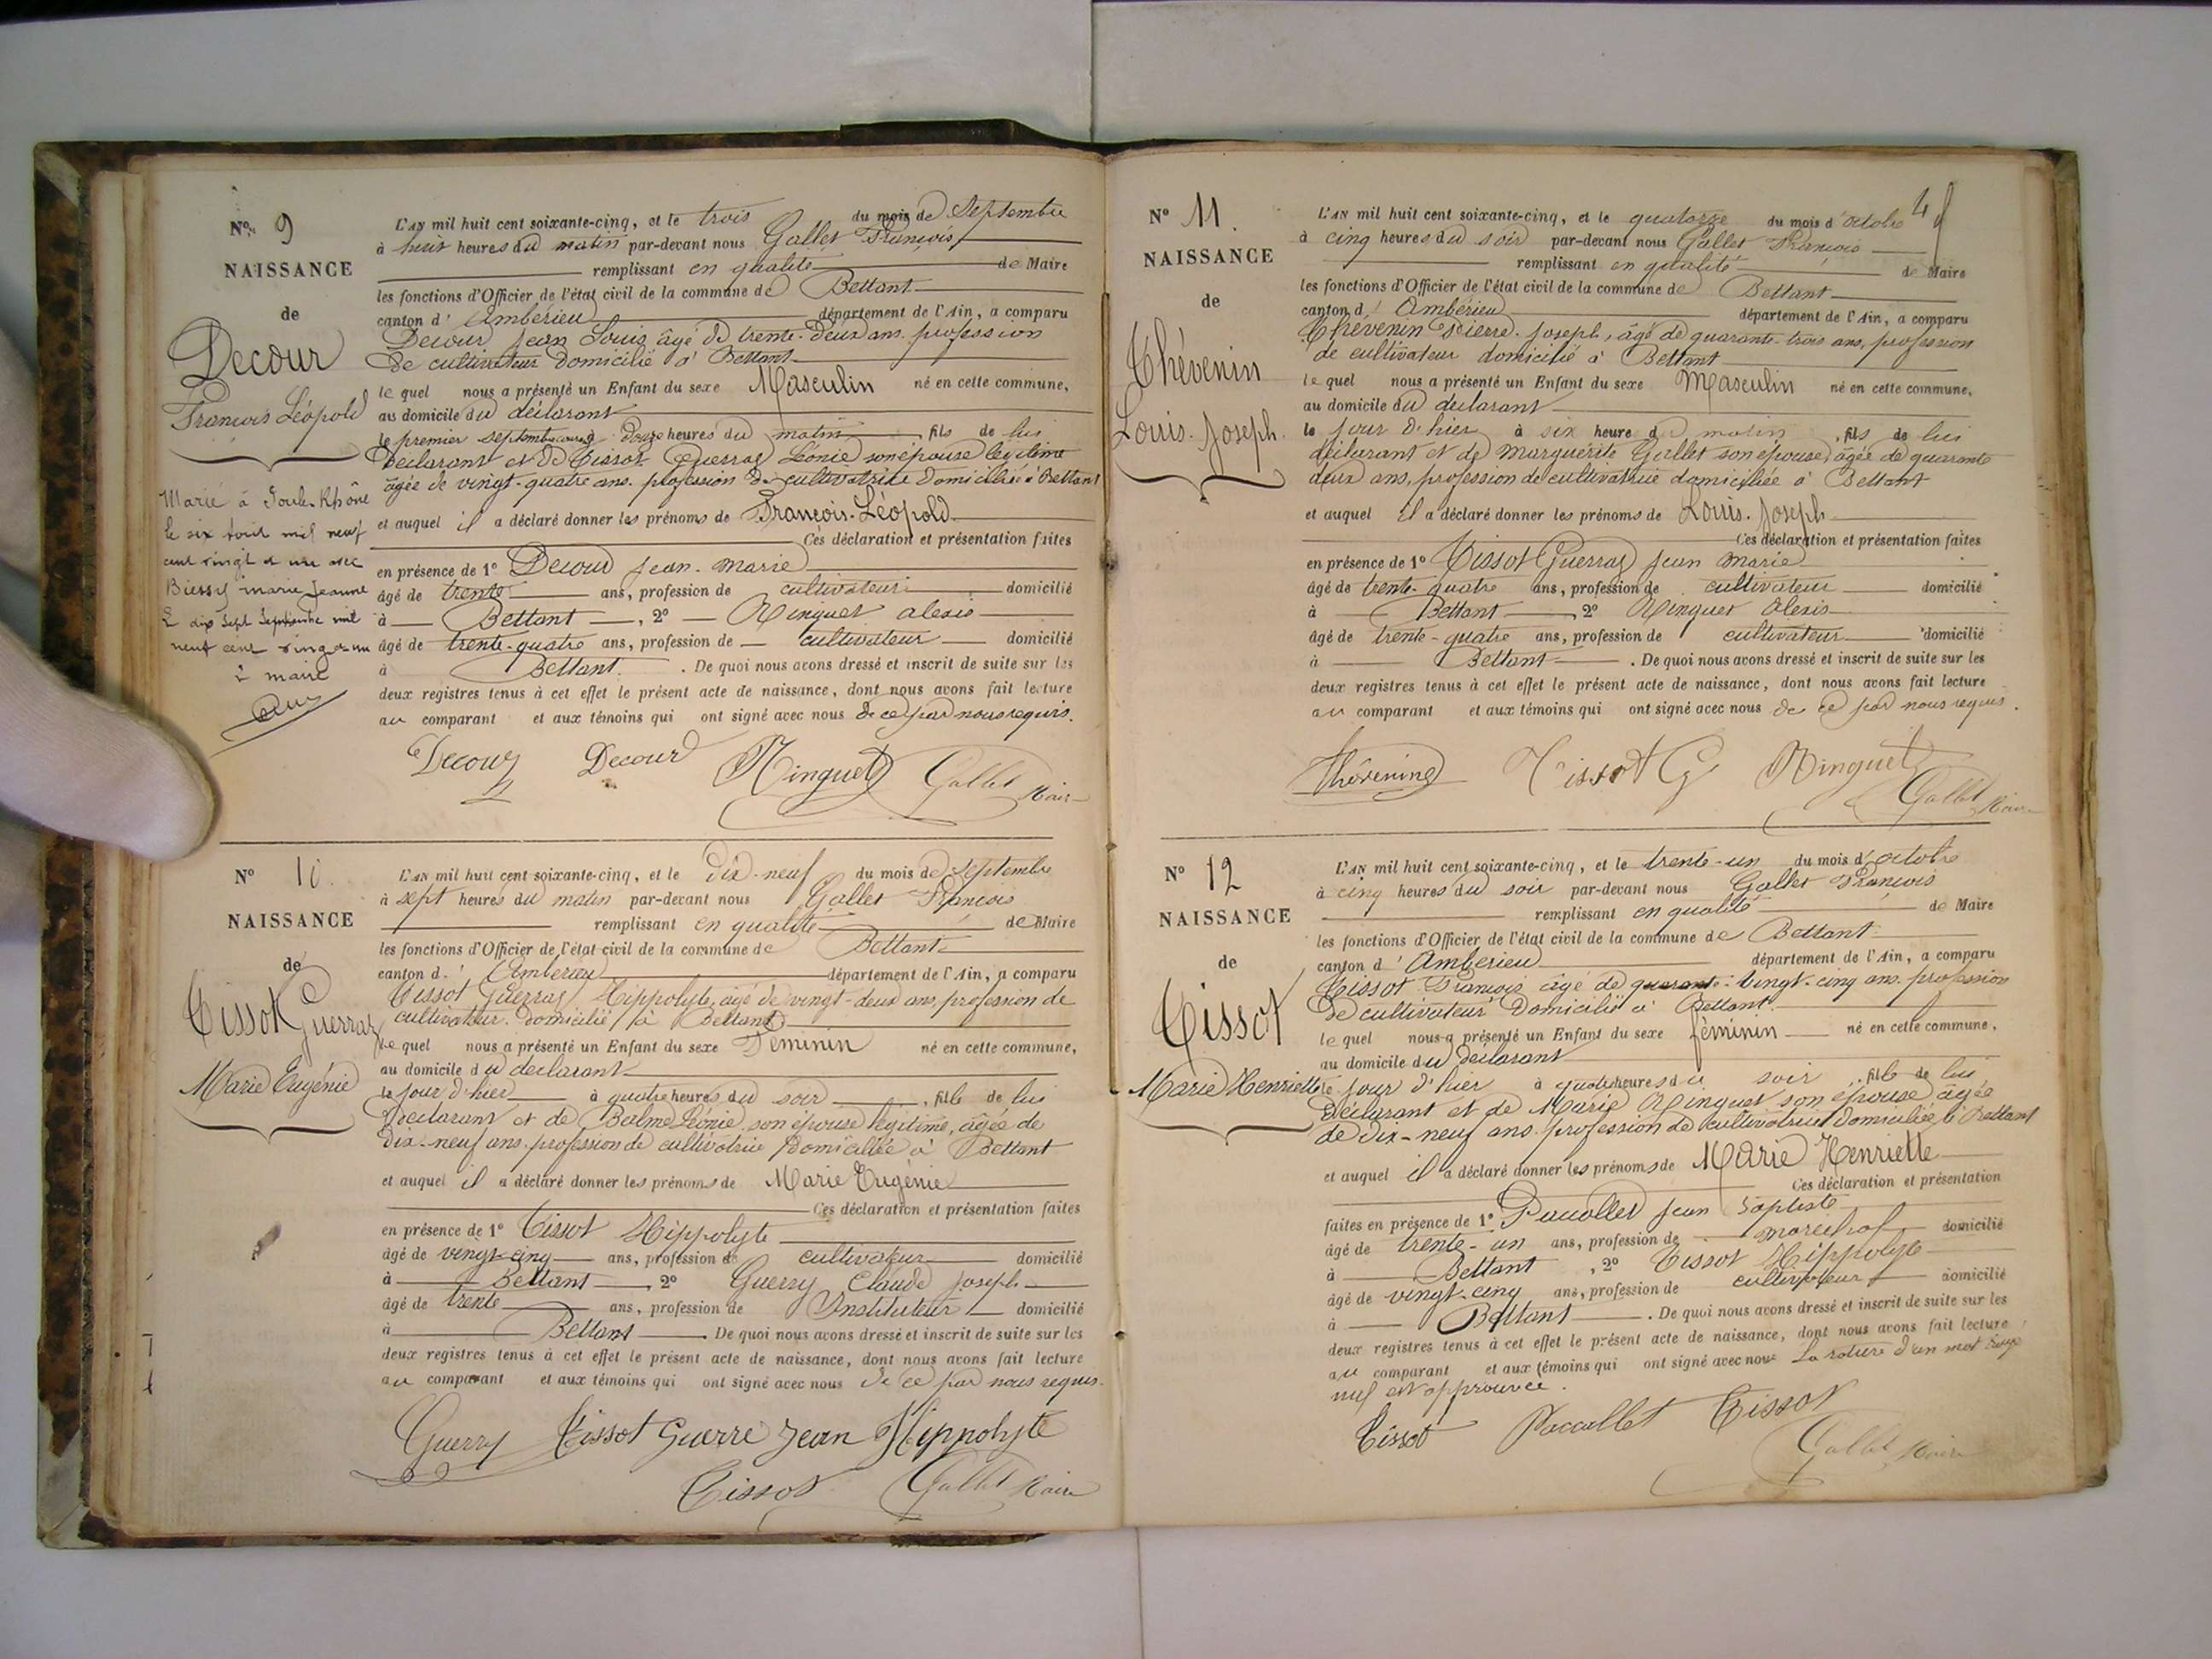 N° 9
NAISSANCE
de
Decour
François Léopold
Marié à
le six août mil neuf
cent vingt et un avec
marie Jeanne
L dix Sept Septembre mil
neuf cent vingt un
L maire
L'AN mil huit cent soixante-cinq, et le trois du mois de Septembre
à huit heures du matin par-devant nous Gallet François
remplissant en qualité de Maire
les fonctions d'Officier de l'état civil de la commune de Bettant
canton d' Ambérieu département de l'Ain, a comparu
Decour Jean Louis, âgé de trente-deux ans, profession
de cultivateur domicilié à Bettant
le quel nous a présenté un Enfant du sexe Masculin né en cette commune,
au domicile du déclarant
le premier septembre courant douze heures du matin, fils de lui
déclarant et de Tissot Guerraz Léonie son épouse légitime
âgée de vingt-quatre ans, profession de cultivatrice domiciliée à Bettant
et auquel il a déclaré donner les prénoms de François-Léopold
Ces déclaration et présentation faites
en présence de 1° Decour Jean-marie
âgé de trente ans, profession de cultivateur domicilié
à Bettant, 2° Ringuet alexis
âgé de trente-quatre ans, profession de cultivateur domicilié
à Bettant. De quoi nous avons dressé et inscrit de suite sur les
deux registres tenus à cet effet le présent acte de naissance, dont nous avons fait lecture
au comparant et aux témoins qui ont signé avec nous de ce par nous requis.
Decour Decour Ringuet Gallet Maire
N° 10
NAISSANCE
de
Tissot Guerraz
Marie Eugénie
L'AN mil huit cent soixante-cinq, et le dix-neuf du mois de septembre
à sept heures du matin par-devant nous Gallet François
remplissant en qualité de Maire
les fonctions d'Officier de l'état civil de la commune de Bettant
canton d' Ambérieu département de l'Ain, a comparu
Tissot Guerraz Hippolyte, âgé de vingt-deux ans, profession de
cultivateur domicilié à Bettant
le quel nous a présenté un Enfant du sexe Féminin né en cette commune,
au domicile du déclarant
le jour d'hier à quatre heures du soir, fille de lui
déclarant et de Balme Léonie, son épouse légitime, âgée de
dix-neuf ans, profession de cultivatrice domiciliée à Bettant
et auquel il a déclaré donner les prénoms de Marie Eugénie
Ces déclaration et présentation faites
en présence de 1° Tissot Hippolyte
âgé de vingt-cinq ans, profession de cultivateur domicilié
à Bettant, 2° Guerry Claude Joseph
âgé de trente ans, profession de Instituteur domicilié
à Bettant. De quoi nous avons dressé et inscrit de suite sur les
deux registres tenus à cet effet le présent acte de naissance, dont nous avons fait lecture
au comparant et aux témoins qui ont signé avec nous de ce par nous requis.
Guerry Tissot Guerre Jean Hippolyte
Tissot Gallet Maire
4
N° 11.
NAISSANCE
de
Thévenin
Louis-Joseph.
L'AN mil huit cent soixante-cinq, et le quatorze du mois d'octobre
à cinq heures du soir par-devant nous Gallet François
remplissant en qualité de Maire
les fonctions d'Officier de l'état civil de la commune de Bettant
canton d' Ambérieu département de l'Ain, a comparu
Thévenin Pierre-Joseph, âgé de quarante-trois ans, profession
de cultivateur domicilié à Bettant
le quel nous a présenté un Enfant du sexe Masculin né en cette commune,
au domicile du déclarant
le jour d'hier à six heure du matin, fils de lui
déclarant et de Marguérite Gallet son épouse, âgée de quarante
deux ans, profession de cultivatrice domiciliée à Bettant
et auquel il a déclaré donner les prénoms de Louis-Joseph
Ces déclaration et présentation faites
en présence de 1° Tissot Guerraz Jean Marie
âgé de trente-quatre ans, profession de cultivateur domicilié
à Bettant, 2° Ringuet Alexis
âgé de trente-quatre ans, profession de cultivateur domicilié
à Bettant. De quoi nous avons dressé et inscrit de suite sur les
deux registres tenus à cet effet le présent acte de naissance, dont nous avons fait lecture
au comparant et aux témoins qui ont signé avec nous de ce par nous requis.
Thévenin Tissot G Ringuet Gallet Maire
N° 12
NAISSANCE
de
Tissot
Marie Henriette
L'AN mil huit cent soixante-cinq, et le trente-un du mois d'octobre
à cinq heures du soir par-devant nous Gallet François
remplissant en qualité de Maire
les fonctions d'Officier de l'état civil de la commune de Bettant
canton d' Ambérieu département de l'Ain, a comparu
Tissot François âgé de quarante vingt-cinq ans, profession
de cultivateur domicilié à Bettant
le quel nous a présenté un Enfant du sexe féminin né en cette commune,
au domicile du déclarant
le jour d'hier à quatre heures du soir, fille de lui
déclarant et de Marie Ringuet son épouse âgée
de dix-neuf ans, profession de cultivatrice domiciliée à Bettant
et auquel il a déclaré donner les prénoms de Marie Henriette
Ces déclaration et présentation
faites en présence de 1° Paccallet Jean Baptiste
âgé de trente-un ans, profession de marechal domicilié
à Bettant, 2° Tissot Hippolyte
âgé de vingt-cinq ans, profession de cultivateur domicilié
à Bettant. De quoi nous avons dressé et inscrit de suite sur les
deux registres tenus à cet effet le présent acte de naissance, dont nous avons fait lecture
au comparant et aux témoins qui ont signé avec nous La rature d'un mot rayé
nul est approuvée.
Tissot Paccallet Tissot
Gallet Maire